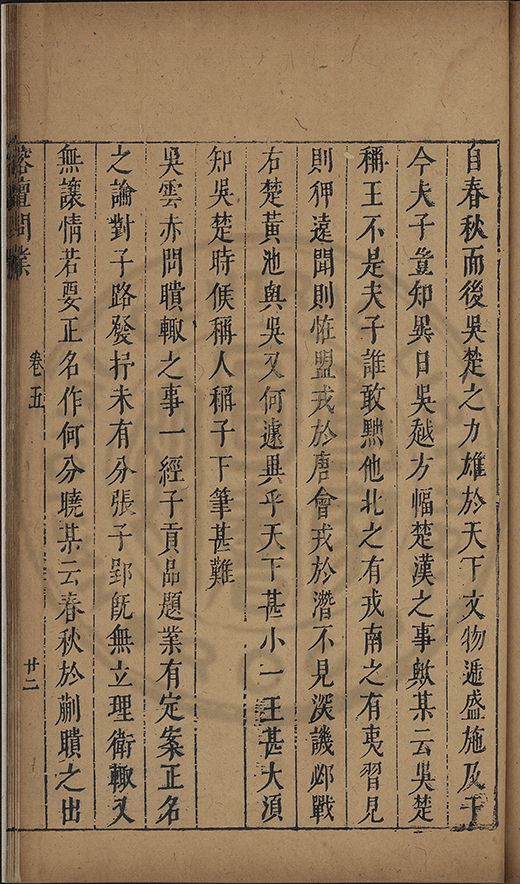 自春秋而後吳楚之力雄於天下文物遞盛施及于
今夫子豈知異日吳越方幅楚漢之事歟某云吳楚
稱王不是夫子誰敢黜他北之有戎南之有夷習見
則狎遠聞則恠盟戎於唐會戎於潛不見深譏邲戰
右楚黃池與吳又何遠異乎天下甚小一王甚大須
知吳楚時候稱人稱子下筆甚難
吳雲赤問瞶輙之事一經子貢品題業有定案正名
之論對子路發抒未有分張子郢旣無立理衛輙又
無讓情若要正名作何分曉某云春秋於蒯瞶之出
榕壇問業
卷五
廿二